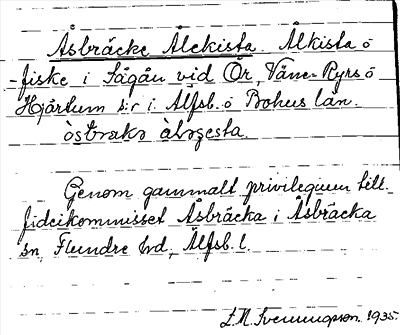 Åsbräcke Ålekista. Ålkista o
fiske i Sågån vid Ör, Väne-Ryrs o
Hjärtum s:r i Älfsb. o Bohus län.
Genom gammalt privilegium till
fideikommisset Åsbräcka i Åsbräcka
sn, Flundre hd, Älfsb. l.
1935.